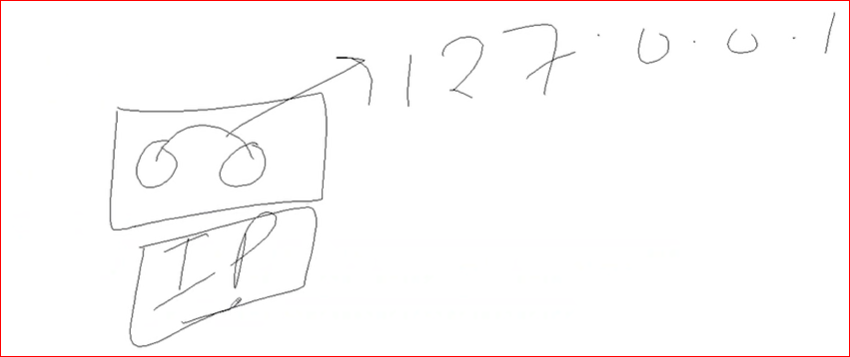 127.0.0.1
IP